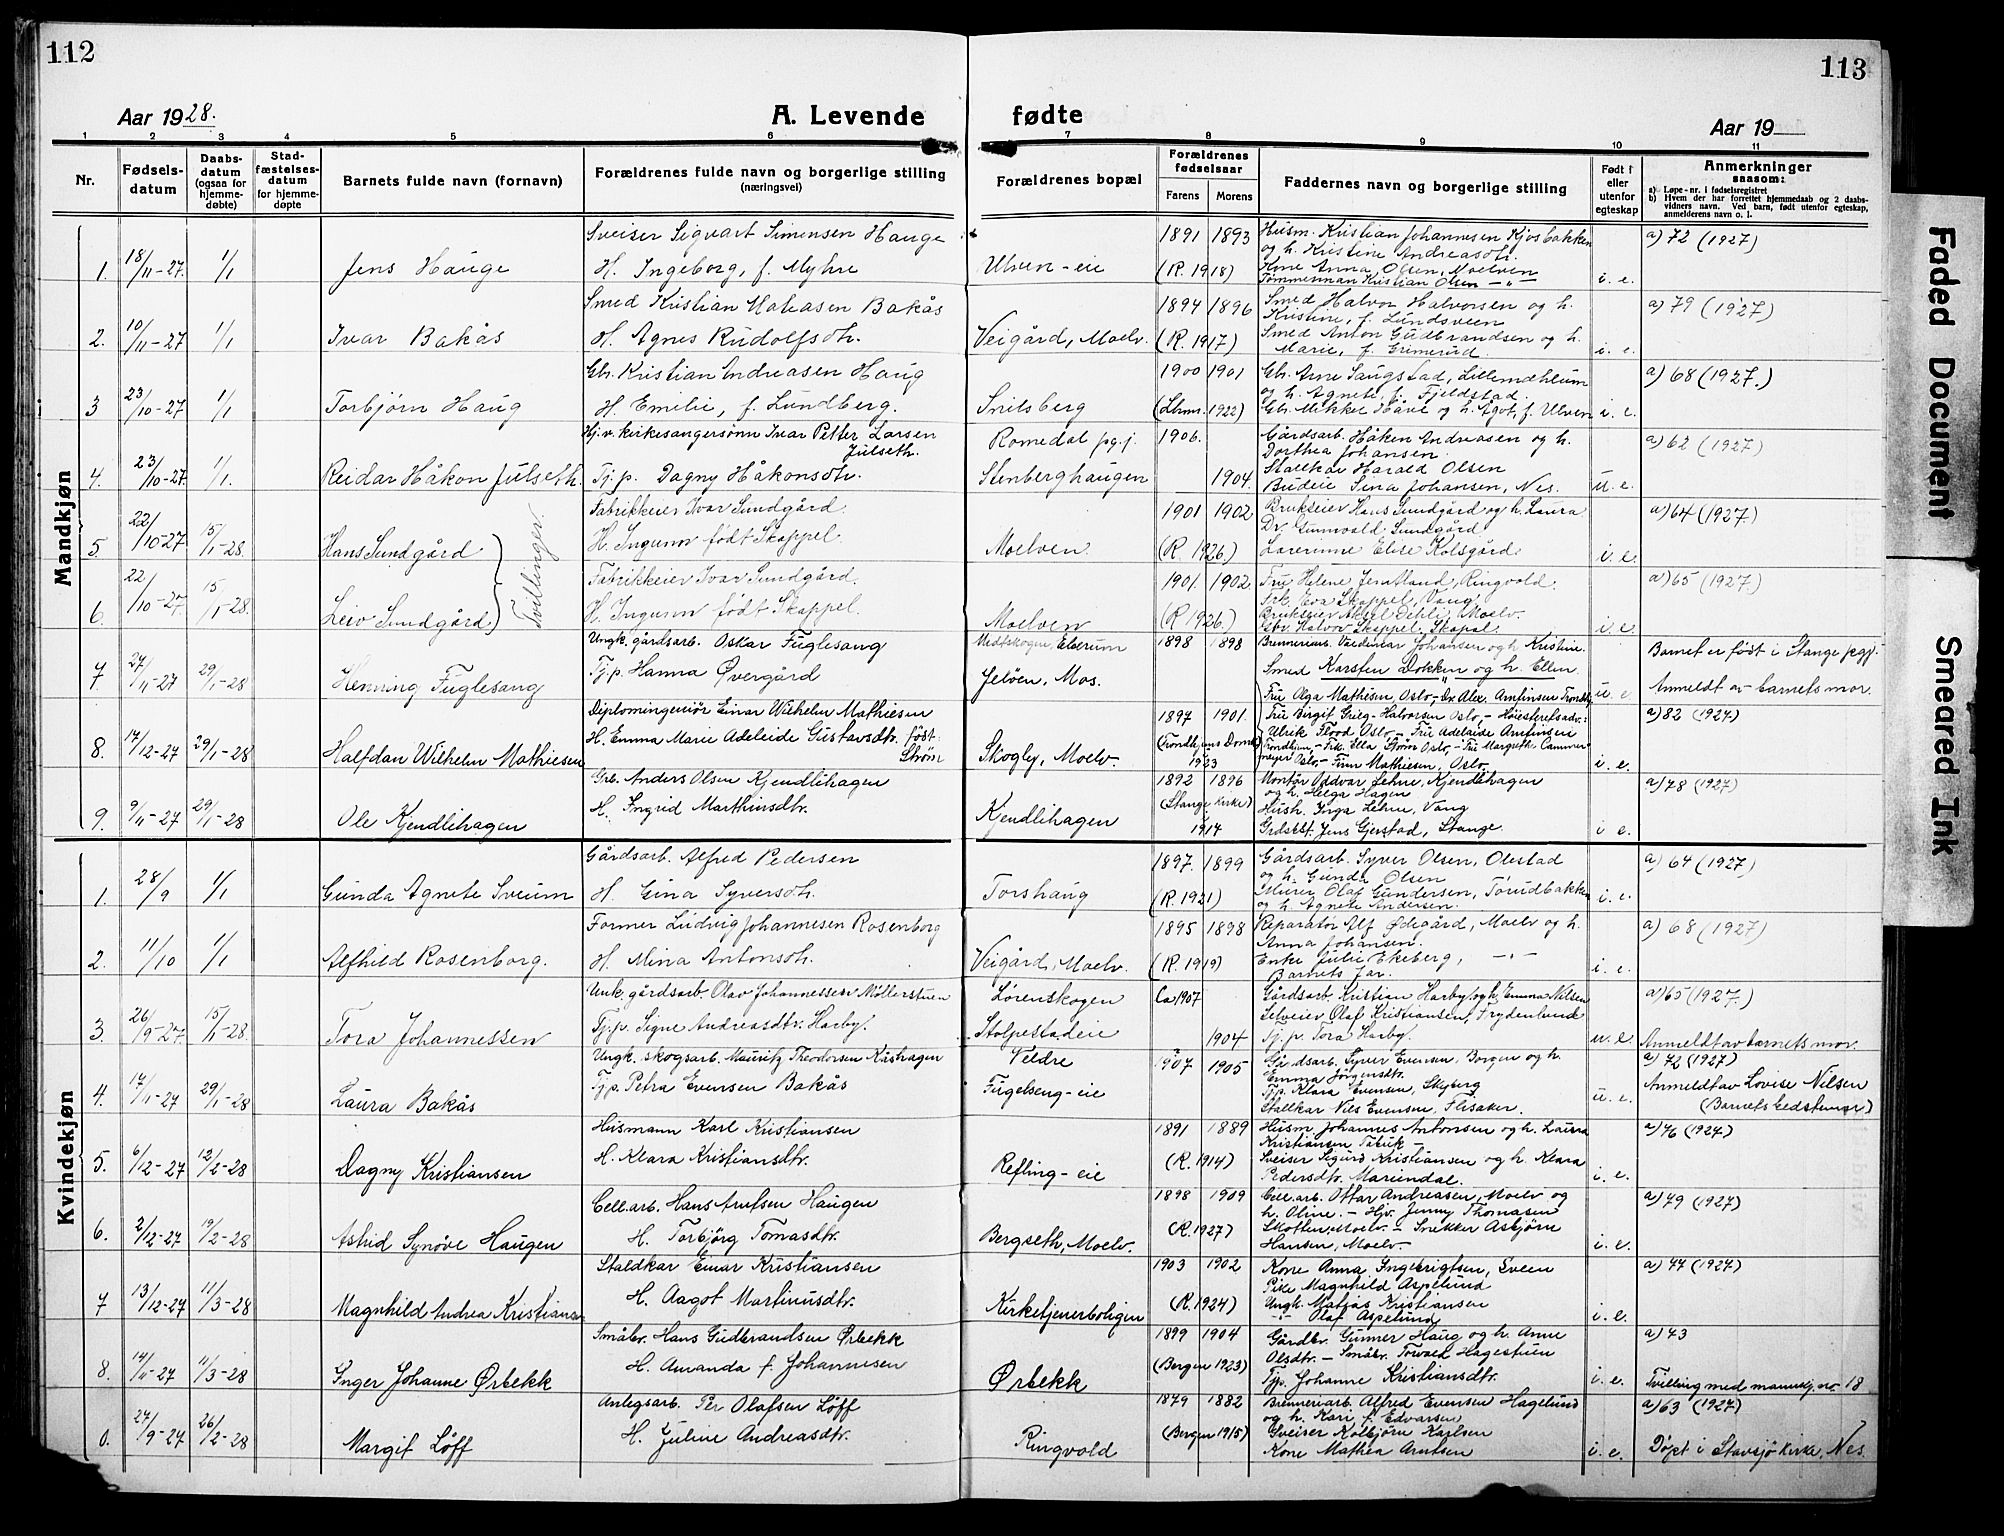 112
113
Aar 1928.
A. Levende
fødte
Aar 19
1 2 3 4 5 6 7 8 9 10 11
Nr.
Fødsels-
datum
Daabs-
datum
(ogsaa for
hjemme-
døbte)
Stad-
fæstelses-
datum
for hjemme-
døpte
Barnets fulde navn (fornavn)
Forældrenes fulde navn og borgerlige stilling
(næringsvei)
Forældrenes bopæl
Forældrenes
fødselsaar
Farens Morens
Faddernes navn og borgerlige stilling
Født i
eller
utenfor
egteskap
Anmerkninger
saasom:
a) Løpe-nr. i fødselsregistret
b) Hvem der har forrettet hjemmedaab og 2 daabs-
vidners navn. Ved barn, født utenfor egteskap,
anmelderens navn o. l.
Mandkjøn
Sveiser Sigvart Simensen Hauge 1891 1893 Husm. Kristian Johannesen Kjosbakken a) 72 (1927)
og h. Kristine Andreasdtr.
1. 18/11-27 1/1 Jens Hauge H. Ingeborg, f. Myhre Ulven-eie (R. 1918) Kone Anna Olsen, Moelven
Tømmerman Kristian Olsen -"- i. e.
Smed Kristian Mahasen Bakås 1894 1896 Smed Halvor Halvorsen og h. a) 79 (1927)
Kristine, f. Lundsveen
2. 10/11-27 1/1 Ivar Bakås H. Agnes Rudolfsdtr. Veigård, Moelv. (R. 1917) Smed Anton Gudbrandsen og h.
Marie, f. Grimerud. i. e.
Gbr. Kristian Andreasen Haug 1900 1901 Gbr. Arne Saugstad, Lillemæhlum a) 68 (1927.)
og h. Agnete, f. Fjeldstad.
3 23/10-27 1/1 Torbjørn Haug H. Emilie, f. Lundberg. Snilsberg (Lhmr. 1922) Gbr. Mikkel Håve og h. Agot, f. Ulven i. e.
Hj.v. kirkesangersønn Ivar Petter Larsen
Julseth. Romedal pg.j. 1906. Gårdsarb. Håken Andreasen og h. a) 62 (1927)
Dorthea Johansen.
4. 23/10-27 1/1. Reidar Håkon Julseth. Tj.p. Dagny Håkonsdtr. Stenberghaugen 1904. Stallkar Harald Olsen
Budeie Sina Johansen, Nes. u. e.
Fabrikkeier Ivar Sundgård. 1901 1902 Brukseier Hans Sundgård og h. Laura a) 64 (1927)
Dr. Gunvald Sundgård
5 22/10-27 15/1-28. Hans Sundgård H. Ingunn født Skappel. Moelven. (R. 1926.) Lærerinne Elise Kolsgård i. e.
Tvillinger.
Fabrikkeier Ivar Sundgård. 1901. 1902. Fru Helene Jevnland, Ringvold. a) 65 (1927)
Frk. Eva Skappel, Vang
6. 22/10-27. 15/1-28. Leiv Sundgård H. Ingunn født Skappel. Moelven (R 1926.) Brukseier Aksel Dehli, Moelv.
Gbr. Halvor Skappel, Skapal. i. e.
Ungk. gårdsarb. Oskar Fuglesang Midtskogen, Elverum 1898 1898 Brenneriarb. Valdemar Johansen og h. Kristine. Barnet er født i Stange pgj.
7. 27/11-27 29/1-28 Henning Fuglesang Tj.p. Hanna Øvergård Jeløen, Mos. Smed Karsten Dokken og h. Ellen u. e. Anmeldt av barnets mor.
Fru Olga Mathisen, Oslo, - Dr. Alex. Arnfinsen Trondhj.
Diplomingeniør Einar Wilhelm Mathiesen 1897 1901. Fru Birgit Grieg-Halvorsen Oslo, - Høiesteretsadv.: a) 82 (1927)
8. 17/12-27 29/1-28 Halfdan Wilhelm Mathiesen H. Emma Marie Adeleide Gustavsdtr. født Strøm Skogly, Moelv. (Trondhjems Domk. 1923 Ulrik Flood Oslo - Fru Adelaide Arnfinsen
Trondheim, - Frk. Ella Strøm Oslo, - Fru Margrethe Cammer
meyer Oslo, - Finn Mathiesen, Oslo. i. e.
Grb. Anders Olsen Kjendlihagen 1892 1896 Montør Oddvar Lehne, Kjendlihagen a) 78 (1927)
og h. Helga Hagen
9. 9/11-27 29/1-28 Ole Kjendlihagen H. Ingrid Marthinsdtr. Kjendlihagen (Stange kirke) 1917 Hush. Inga Lehne, Vang
Grdsbst. Jens Gjerstad, Stange. i e.
Kvindekjøn
Gårdsarb. Alfred Pedersen 1897. 1899 Gårdsarb. Syver Olsen, Olestad a) 64 (1927)
og h. Gunda Olsen
1. 28/9 1/1 Gunda Agnete Sveum H. Gina Syversdtr. Torshaug (R. 1921) Murer Olaf Gundersen, Torudbakken
og h. Agnete Andersen. i. e.
Former Ludvig Johannesen Rosenborg 1895 1898 Reparatør Alf Ødegård, Moelv og h. a) 68 (1927)
Anna Johansen.
2. 11/10 1/1 Alfhild Rosenborg. H. Mina Antonsdtr. Veigård, Moelv. (R. 1919) Enke Julie Ekeberg, -"-
Barnets far. i. e.
Unk. gårdsarb. Olav Johannessen Møllerstuen Lørenskogen Ca 1907 Gårdsarb. Kristian Harby og h. Emma Nilsen a) 65 (1927.)
Selveier Olaf Kristiansen, Frydenlund
3. 26/9-27. 15/1-28 Tora Johannessen Tj.p. Signe Andreasdtr. Harby. Stolpestadeie 1904 Tj. p. Tora Harby. u. e. Anmeldt av barnets mor.
Ungk. skogsarb. Mauritz Theodorsen Kashagen Veldre 1907 1905 Gårdsarb. Syver Evensen, Borgen og h. a) 72 (1927)
Emma Jørgensdtr.
4. 17/11-27 29/1-28 Laura Bakås Tjp. Petra Evensen Bakås Fugelseng-eie Tjp. Klara Evensen, Skyberg
Stallkar Nils Evensen, Flisaker. u. e. Anmeldt av Lovise Nilsen
(Barnets bedstemor)
Husmann Karl Kristiansen 1891 1889 Husm. Johannes Antonsen og h. Laura a) 76 (1927)
Kristiansen
5. 6/12-27 12/2-28 Dagny Kristiansen H. Klara Kristiansdtr. Refling-eie (R. 1914) Sveiser Sigurd Kristiansen og h. Klara
Pedersdtr. Mariendal. i. e.
Cell.arb. Hans Arnfsen Haugen 1898 1909 Cell.arb. Ottar Andreasen, Moelv og a) 79 (1927)
h. Oline. - Hjv. Jenny Thomasen
6. 2/12-27 19/2-28 Astrid Synøve Haugen H. Torbjørg Tomasdtr. Bergseth, Moelv. (R. 1927) Skotten, Moelv. - Snekker Asbjørn
Hansen, Moelv. i. e.
Staldkar Einar Kristiansen 1903 1902 Kone Anna Ingebrigtsen, Sveen a) 77 (1927)
Pike Magnhild Aspelund
7 13/12-27 11/3-28 Magnhild Andrea Kristiansen H. Aagot Martinusdtr. Kirketjenerboligen (R. 1924) Ungk. Matias Kristiansen
-"- Olaf Aspelund i. e.
Småbr. Hans Gudbrandsen Ørbekk 1899 1904 Gårdbr. Gunner Haug og h. Anne a) 43
Olsdtr. - Småbr. Torvald Hagestuen
8. 14/11-27 11/3-28 Inger Johanne Ørbekk H. Amanda f. Johannesen Ørbekk (Bergen 1923) Tjp. Johanne Kristiansdtr. i. e. Tvilling med mannkj. nr. 18
Anlegsarb. Per Olafsen Løff 1879 1882 Brenneriarb. Alfred Evensen Hagelund a) 63 (1927)
og h. Kari f. Edvarsen
0. 27/9-27 26/2-28 Margit Løff H. Juline Andreasdtr. Ringvold (Bergen 1915) Sveiser Kolbjørn Karlsen
Kone Mathea Arntsen i. e. Døpt i Stavsjø kirke, Nes.
Faded Document
Smeared Ink